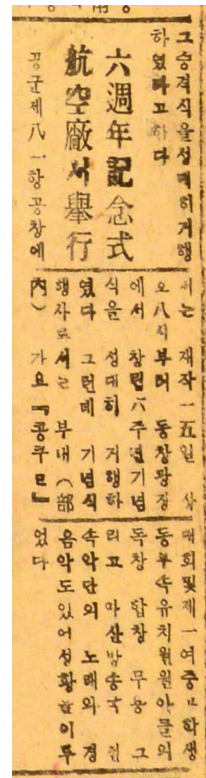 그 승격식을 성대히 거행
하였다고 한다
六週年記念式
航空廠서擧行
공군제八一항공창에
서는 재작一五일 상
오八시부터 동창광장
에서 창립六주년기념
식을 성대히 거행하
였다 그런데 기념식
행사로서는 부내(部
內) 가요 『콩쿠르』
대회및제一여중고학생
동부속유치원원아들의
독창 합창 무용 그
리고 마산방송국 전
속악단의 노래와 경
음악도있어성황을이루
었다